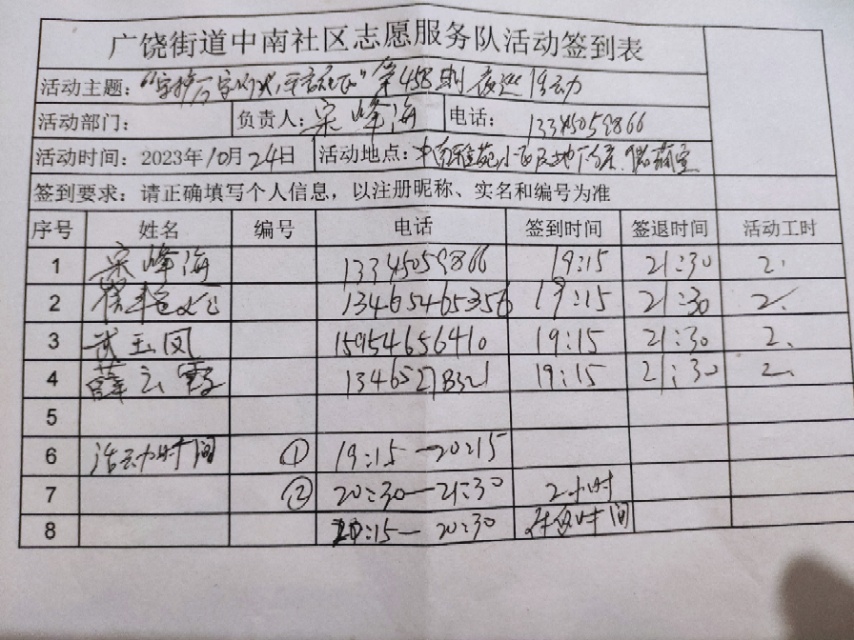 广饶街道中南社区志愿服务队活动签到表
活动主题： 第458期 夜巡活动
活动部门： 负责人：宋峰海 电话：13345059866
活动时间：2023年10月24日 活动地点：中南雅苑小区及地下车库
签到要求：请正确填写个人信息，以注册昵称、实名和编号为准
序号 姓名 编号 电话 签到时间 签退时间 活动工时
1 宋峰海 13345059866 19:15 21:30 2.
2 13465465356 19:15 21:30 2.
3 武玉凤 15954656410 19:15 21:30 2.
4 薛云霞 19:15 21:30 2.
5
6 活动时间 ① 19:15—20:15
7 ② 20:30—21:30 2小时
8 20:15—20:30 休息时间